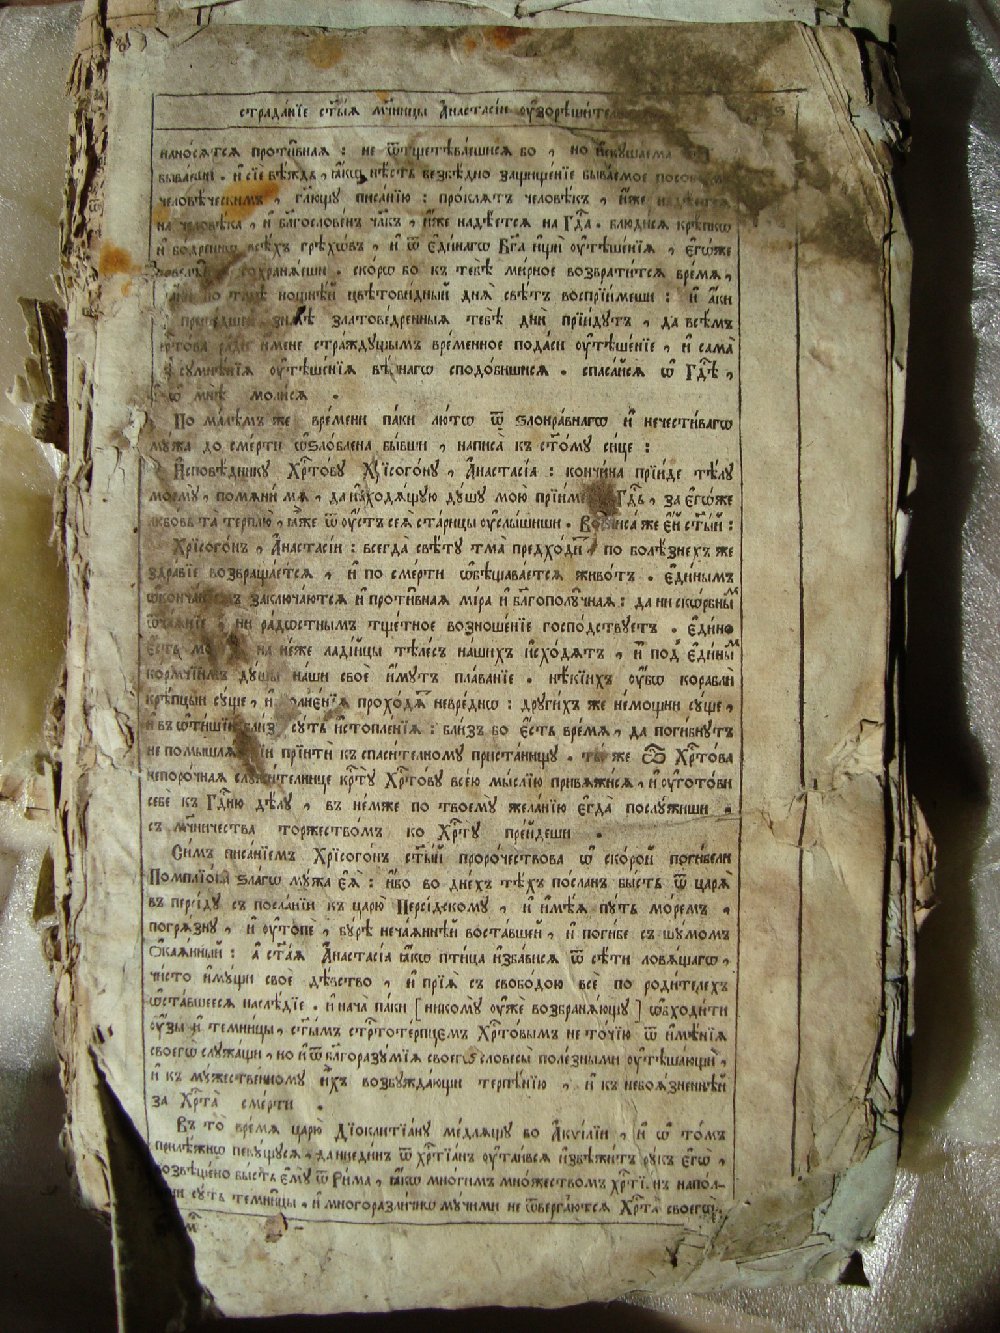 страда́нїе ст҃ы́ѧ мч҃ницы А҆настасі́и
нано́сѧтсѧ проти́внаѧ : не ѿтщетѣ́вшисѧ бо , но и҆скуша́ема
быва́еши . и҆ сїѐ вѣ́ждь , ꙗ҆́кѡ нѣ́сть безбѣ́дно защище́нїе быва́емое
человѣ́ческимъ , гл҃ющу писа́нїю : про́клѧтъ человѣ́къ , и҆́же надѣ́етсѧ
на человѣ́ка , и҆ блг҃ослове́нъ чл҃вкъ , и҆́же надѣ́етсѧ на Гд҃а . блюди́сѧ крѣ́пкѡ
и҆ бо́дреннѡ всѣ́хъ грѣхѡ́въ , и҆ ѿ є҆ди́нагѡ Бг҃а и҆щѝ ᲂу҆тѣше́нїѧ , є҆гѡ́же
сохранѧ́еши . ско́рѡ бо къ тебѣ̀ ми́рное возврати́тсѧ вре́мѧ ,
по тмѣ̀ нощнѣ́й цвѣтови́дный днѧ̀ свѣ́тъ воспрїи́меши : и҆ а҆́ки
зимѣ̀ златове́дренныѧ тебѣ̀ дни̑ прїи́дутъ , да всѣ́мъ
ра́ди и҆́мене стра́ждущымъ вре́менное пода́си ᲂу҆тѣше́нїе , и҆ сама̀
сумнѣ́нїѧ ᲂу҆тѣше́нїѧ вѣ́чнагѡ сподо́бишисѧ . спаса́йсѧ ѡ҆ Гд҃ѣ ,
ѡ҆ мнѣ̀ моли́сѧ .
По ма́лѣмъ же вре́мени па́ки лю́тѡ ѿ ѕлонра́внагѡ и҆ нечести́вагѡ
му́жа до сме́рти ѡ҆ѕло́блена бы́вши , написа̀ къ ст҃о́му си́це :
И҆сповѣ́днику Хрⷭ҇то́ву Хрѷсого́ну , А҆настасі́а : кончи́на прїи́де тѣ́лу
моемꙋ̀ , помѧнѝ мѧ , да и҆сходѧ́щую ду́шу мою̀ прїи́ме Гд҃ь , за є҆гѡ́же
любо́вь та̑ терплю̀ , ꙗ҆̀же ѿ ᲂу҆́стъ сеѧ̀ ста́рицы ᲂу҆слы́шиши . Ѿписа́ же є҆́й ст҃ы́й :
Хрїсого́нъ , А҆настасі́и : всегда̀ свѣ́ту тма̀ предхо́дитъ , по болѣ́знехъ же
здра́вїе возвраща́етсѧ , и҆ по сме́рти ѡ҆бѣщава́етсѧ живо́тъ . є҆ди́нымъ
ѡ҆конча́нїемъ заключа́ютсѧ и҆ проти̑внаѧ мі́ра и҆ бл҃гополу̑чнаѧ : да ни ско́рбнымъ
ѿча́ѧнїе , ни ра́достнымъ тще́тное возноше́нїе госпо́дствуетъ . є҆ди́но
є҆́сть мо́ре , на не́мже ладїи̑цы тѣле́съ на́шихъ и҆схо́дѧтъ , и҆ под̾ є҆ди́нымъ
ко́рмчїимъ ду́шы на́ши своѐ и҆́мутъ пла́ванїе . нѣ́кїихъ ᲂу҆́бѡ корабли̑
крѣ́пцыи су́ще , и҆ волне́нїѧ прохо́дѧтъ невре́днѡ : други́хъ же не́мощни су́ще ,
и҆ въ ѡ҆ти́шїи бли́з̾ су́ть и҆стопле́нїѧ : бли́зъ бо є҆́сть вре́мѧ , да поги́бнутъ
не помышлѧ́ющїи прїитѝ къ спаси́телному приста́нищу . ты́ же ѽ Хрⷭ҇то́ва
непоро́чнаѧ служи́телнице крⷭ҇тꙋ̀ Хрⷭ҇то́ву все́ю мы́слїю привѧжи́сѧ , и҆ ᲂу҆гото́ви
себѐ къ Гдⷭ҇ню дѣ́лу , въ не́мже по твоемꙋ̀ жела́нїю є҆гда̀ послу́жиши .
съ мч҃ничества торжество́мъ ко Хрⷭ҇тꙋ̀ пре́йдеши .
Си́мъ писа́нїемъ Хрїсого́нъ ст҃ы́й проро́чествова ѡ҆ ско́рой поги́бели
Помплїо́ва ѕла́гѡ му́жа є҆ѧ̀ : и҆́бо во дне́хъ тѣ́хъ по́сланъ бы́сть ѿ царѧ̀
въ персі́ду съ посла́нїи къ царю̀ Персі́дскому , и҆ и҆мѣ́ѧ пу́ть мо́ремъ ,
погрѧзнꙋ̀ , и҆ ᲂу҆топѐ , бу́ри неча́ѧннѣй воста́вшей , и҆ поги́бе съ шу́момъ
ѻ҆каѧ́нный : а҆ ст҃а́ѧ А҆настасі́а ꙗ҆́кѡ пти́ца и҆зба́висѧ ѿ сѣ́ти ловѧ́щагѡ ,
чи́сто и҆му́щи своѐ дѣ́вство , и҆ прїѧ̀ съ свобо́дою всѐ по роди́телехъ
ѡ҆ста́вшеесѧ наслѣ́дїе . и҆ нача̀ па́ки [ никомꙋ̀ ᲂу҆жѐ возбранѧ́ющу ] ѡ҆бходи́ти
ᲂу҆́зы и҆ темни́цы , ст҃ы̑мъ стрⷭ҇тоте́рпцемъ Хрⷭ҇то́вымъ не то́чїю ѿ и҆мѣ́нїѧ
своегѡ̀ служа́щи , но и҆ ѿ блг҃оразу́мїѧ своегѡ̀ словесы̀ поле́зными ᲂу҆тѣша́ющи ,
и҆ къ му́жественному и҆́хъ возбужда́ющи терпѣ́нїю , и҆ къ небоѧ́зненнѣй
за Хрⷭ҇та̀ сме́рти .
Въ то̀ вре́мѧ царю̀ Дїоклитїа́ну ме́длѧщу во А҆кѷлі́и , и҆ ѡ҆ то́мъ
приле́жнѡ пеку́щусѧ , да ни є҆ди́нъ ѿ хрⷭ҇тїа́нъ ᲂу҆таи́всѧ и҆збѣжи́тъ ру́къ є҆гѡ̀ ,
возвѣщено̀ бы́сть є҆мꙋ̀ ѿ Ри́ма , ꙗ҆́кѡ мно́гимъ мно́жествомъ хрⷭ҇тїа́нъ напо́л-
су́ть темни́цы , и҆ многоразли́чнѡ му́чими не ѿверга́ютсѧ Хрⷭ҇та̀ своегѡ̀ ,